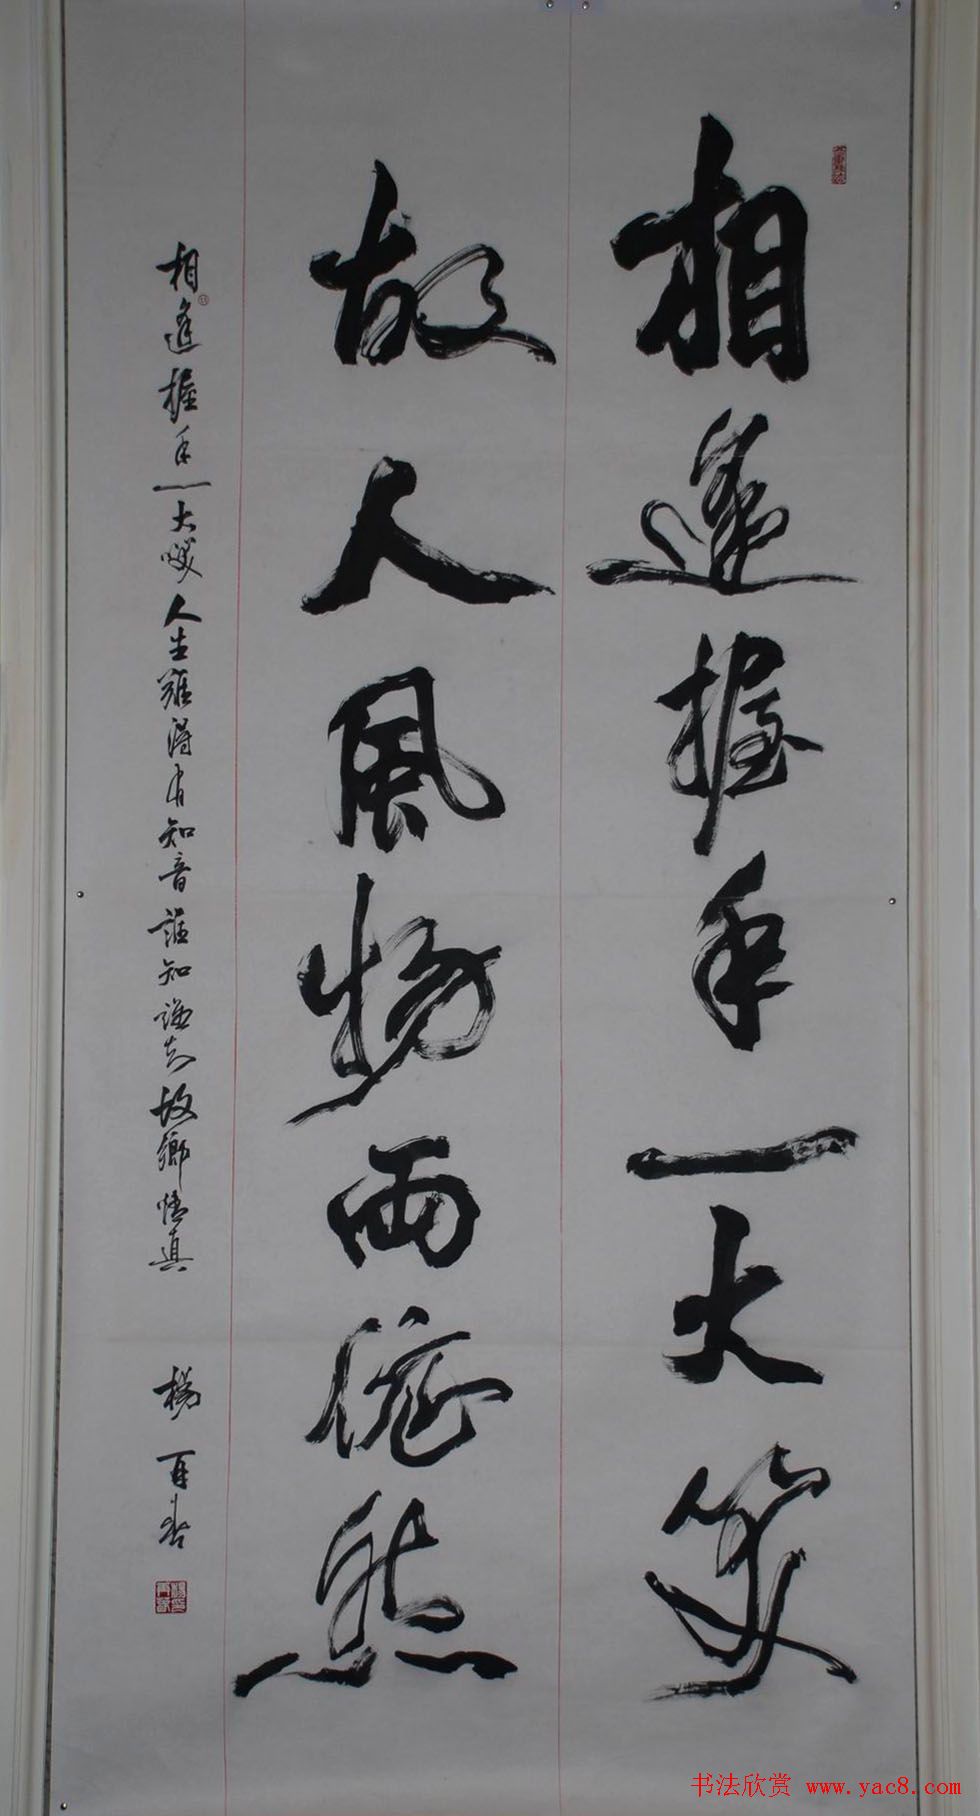 相逢握手一大笑
故人風物两依然
相逢握手一大咲人生難得有知音誰知故鄉情真
楊再春
书法欣赏 www.yac8.com